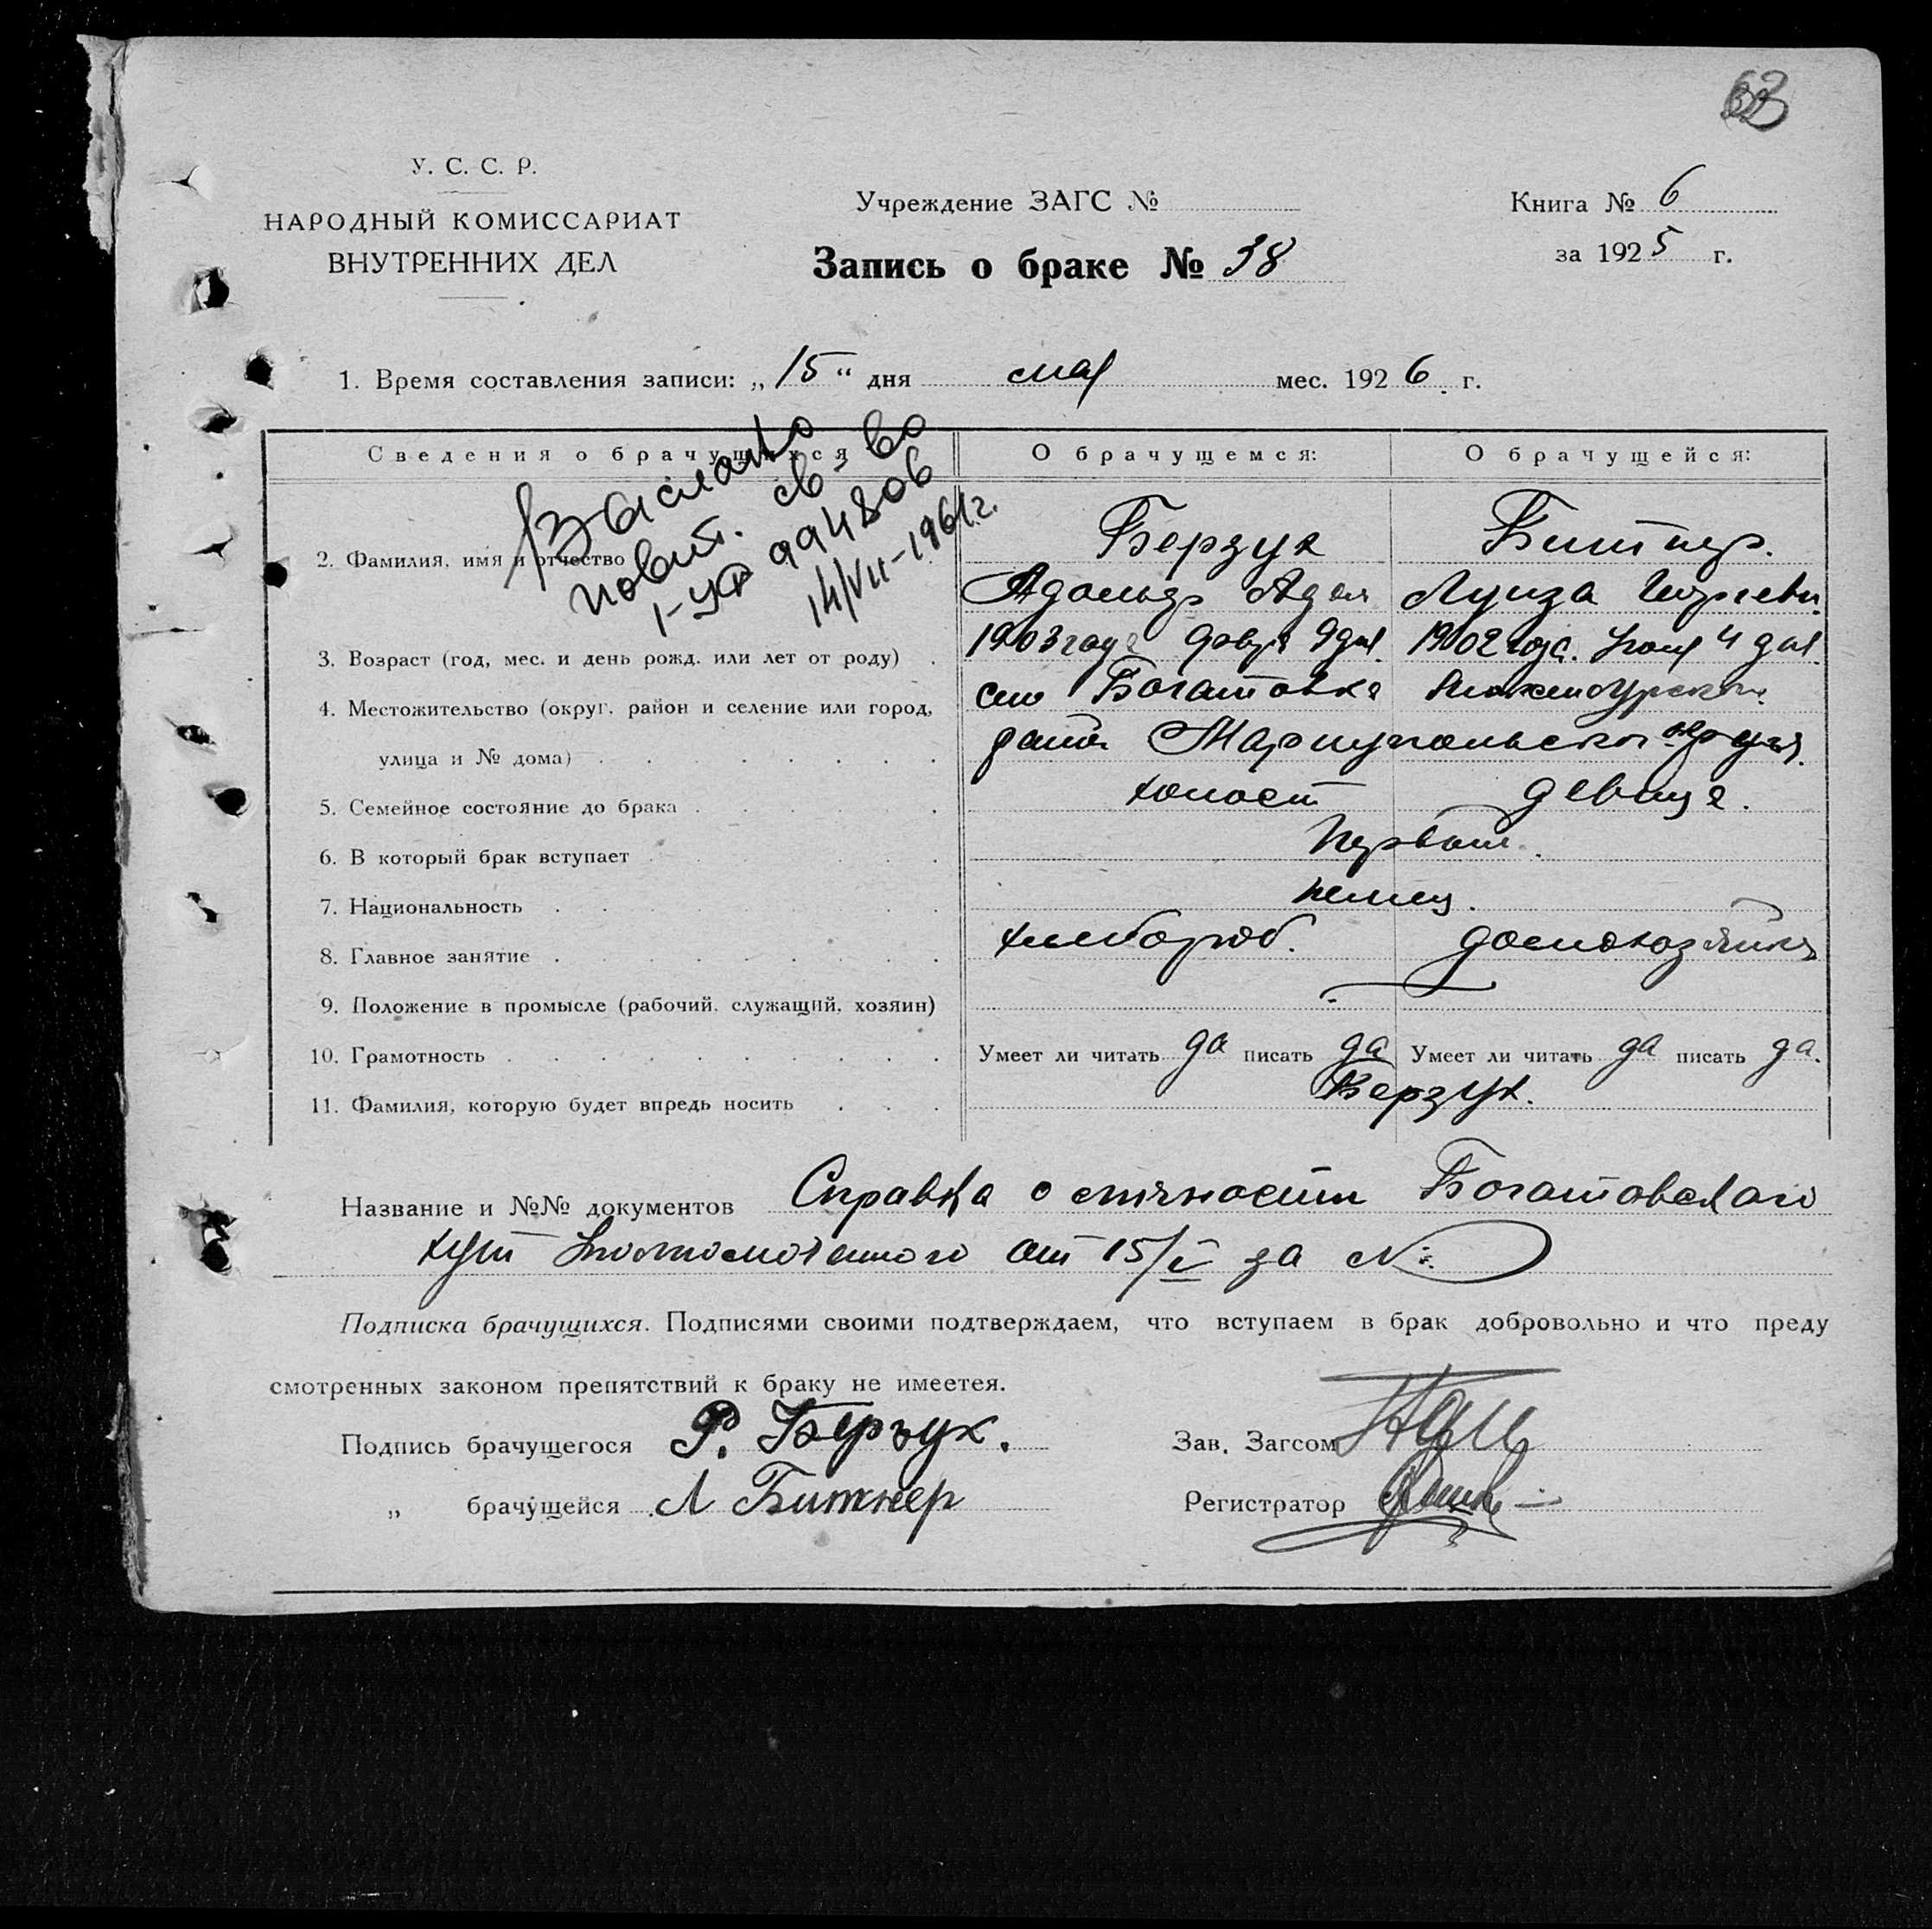 У. С. С. Р.
НАРОДНЫЙ КОМИССАРИАТ
ВНУТРЕННИХ ДЕЛ
Учреждение ЗАГС №
Запись о браке № 38
Книга № 6
за 1925 г.
1. Время составления записи: „15“ дня мая мес. 1926 г.
Сведения о брачущихся
О брачущемся:
О брачущейся:
Выслано
повт. св-во
I-УР 994806
14/VII-1961г.
2. Фамилия, имя и отчество
Берзух
Битнер.
Адольф Адол
Луиза
3. Возраст (год, мес. и день рожд. или лет от роду)
1903 года февр 9 дня.
1902 года. 4 дня.
4. Местожительство (округ, район и селение или город,
улица и № дома)
село Богатовка Люксембургского
района Мариупольского округа.
5. Семейное состояние до брака
холост
девица.
6. В который брак вступает
первый.
7. Национальность
немец.
8. Главное занятие
хлебороб.
домохозяйка
9. Положение в промысле (рабочий, служащий, хозяин)
10. Грамотность
Умеет ли читать да писать да
Умеет ли читать да писать да.
11. Фамилия, которую будет впредь носить
Берзух.
Название и №№ документов Справка о личности Богатовского
хут Уполномоченного от 15/V за №
Подписка брачущихся. Подписями своими подтверждаем, что вступаем в брак добровольно и что преду
смотренных законом препятствий к браку не имеетея.
Подпись брачущегося Р. Берзух.
Зав. Загсом
„ брачущейся Л Битнер
Регистратор